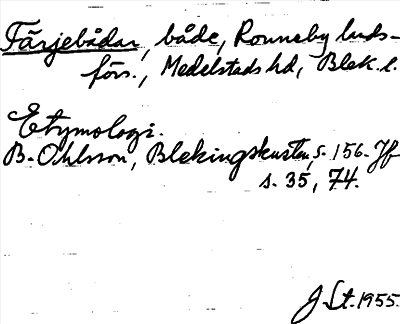 Färjebådar, både, Ronneby lands-
förs., Medelstads hd, Blek. l.
Etymologi.
B. Ohlsson, Blekingskusten, s. 156. Jfr
s. 35, 74.
J. St. 1955.